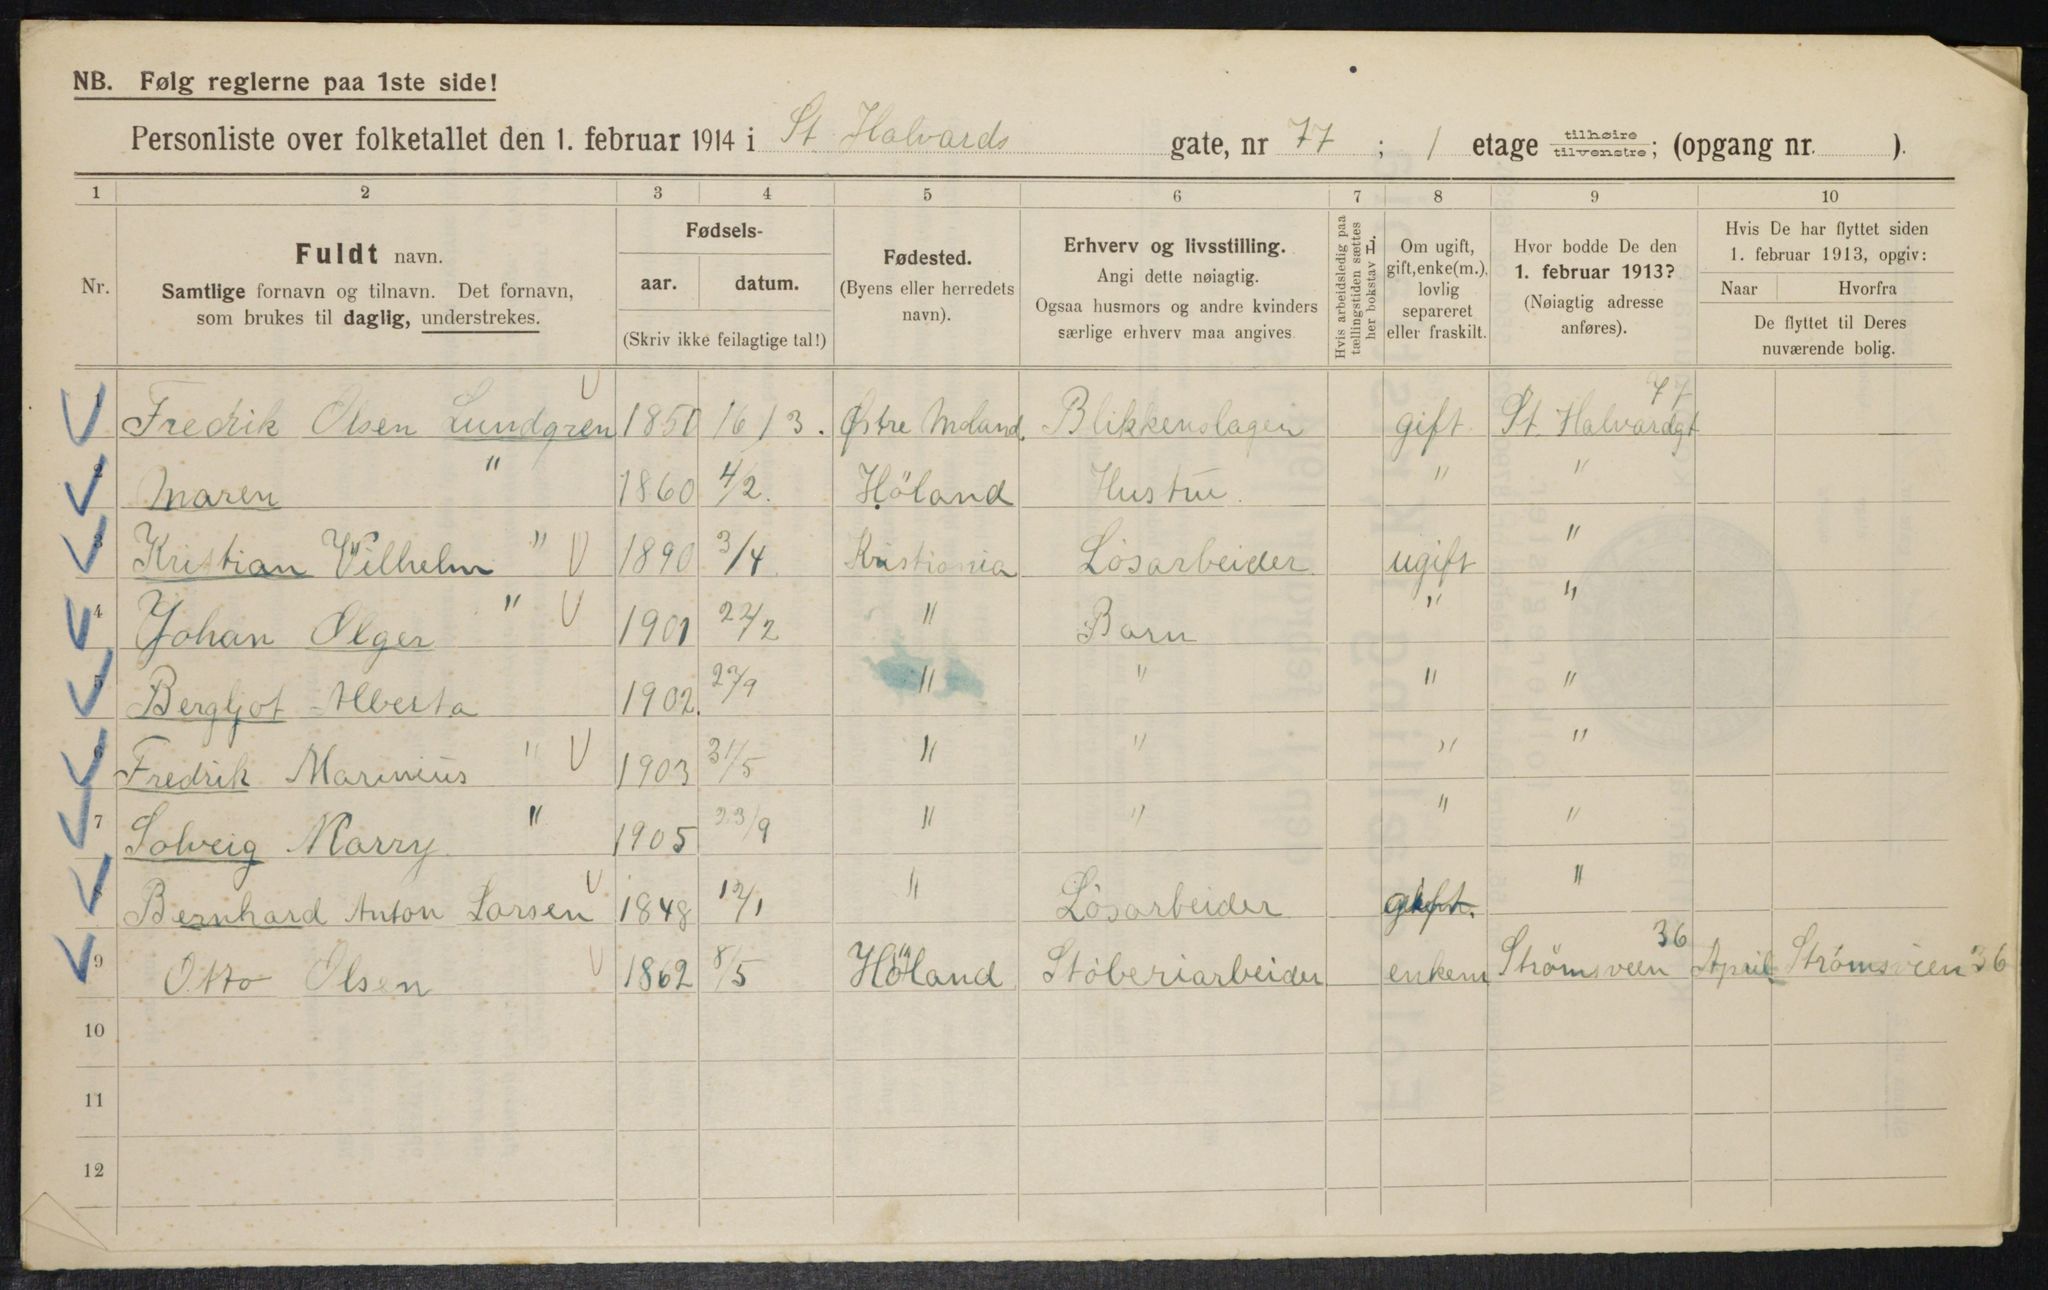 NB. Følg reglerne paa 1ste side!
Personliste over folketallet den 1. februar 1914 i St Halvards gate, nr 77 ; 1 etage tilhøire tilvenstre; (opgang nr. ).
1 2 3 4 5 6 7 8 9 10
Nr.
Fuldt navn.
Samtlige fornavn og tilnavn. Det fornavn,
som brukes til daglig, understrekes.
Fødsels-
aar. datum.
(Skriv ikke feilagtige tal!)
Fødested.
(Byens eller herredets
navn).
Erhverv og livsstilling.
Angi dette nøiagtig.
Ogsaa husmors og andre kvinders
særlige erhverv maa angives
Hvis arbeidsledig paa
tællingstiden sættes
her bokstav L.
Om ugift,
gift, enke(m.),
lovlig
separeret
eller fraskilt.
Hvor bodde De den
1. februar 1913?
(Nøiagtig adresse
anføres).
Hvis De har flyttet siden
1. februar 1913, opgiv:
Naar Hvorfra
De flyttet til Deres
nuværende bolig.
1 Fredrik Olsen Lundgren 1850 16/3. Østre Moland. Blikkenslager gift St. Halvardgt 77
2 Maren " 1860 4/2. Höland Hustru. " "
3 Kristian Vilhelm " 1890 3/4 Kristiania Lösarbeider ugift "
4 Johan Olger " 1901 22/2 " Barn " "
5 Bergljot Alberta 1902. 29/9 " " " "
6 Fredrik Marinius " 1903 31/5 " " " "
7 Solveig Marry " 1905 23/9 " " " "
8 Bernhard Anton Larsen 1848 12/1 " Lösarbeider gift. "
9 Otto Olsen 1862 8/5 Höland Stöberiarbeider enkem Strömsveen 36 April Strömsveien 36
10
11
12